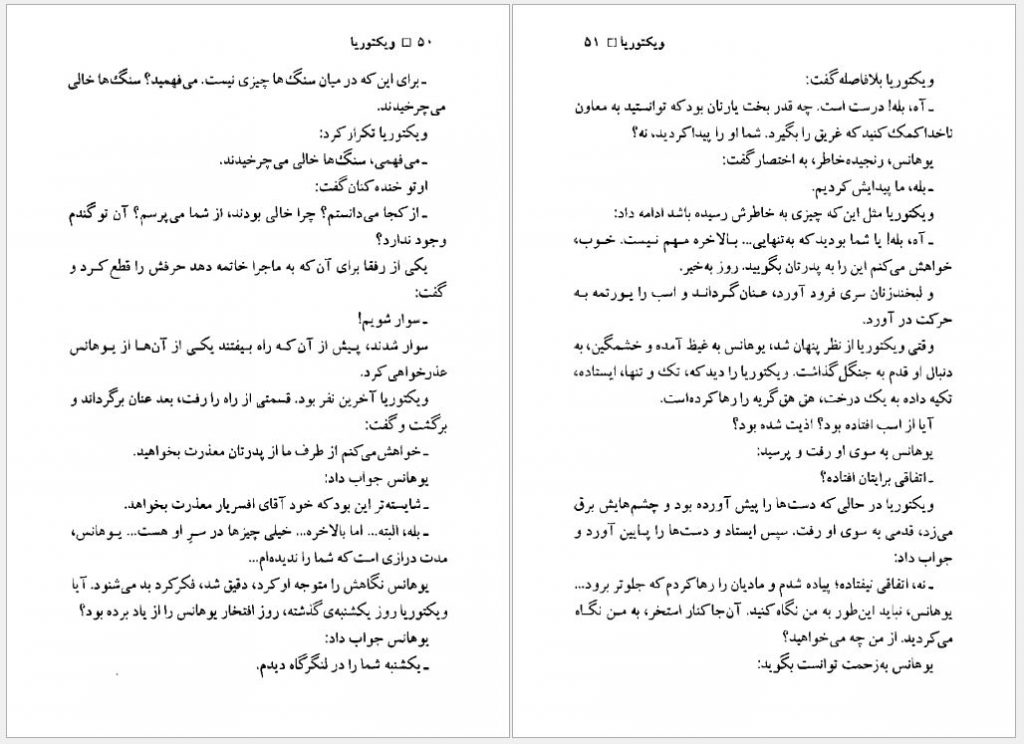 ۵۰ □ ویکتوریا
ـ برای این که در میان سنگ‌ها چیزی نیست. می‌فهمید؟ سنگ‌ها خالی
می‌چرخیدند.
ویکتوریا تکرار کرد:
ـ می‌فهمی، سنگ‌ها خالی می‌چرخیدند.
اوتو خنده‌کنان گفت:
ـ از کجا می‌دانستم؟ چرا خالی بودند، از شما می‌پرسم؟ آن تو گندم
وجود ندارد؟
یکی از رفقا برای آن که به ماجرا خاتمه دهد حرفش را قطع کرد و
گفت:
ـ سوار شویم!
سوار شدند، پیش از آن که راه بیفتند یکی از آن‌ها از یوهانس
عذرخواهی کرد.
ویکتوریا آخرین نفر بود. قسمتی از راه را رفت، بعد عنان برگرداند و
برگشت و گفت:
ـ خواهش می‌کنم از طرف ما از پدرتان معذرت بخواهید.
یوهانس جواب داد:
ـ شایسته‌تر این بود که خود آقای افسریار معذرت بخواهد.
ـ بله، البته... اما بالاخره... خیلی چیزها در سرِ او هست... یوهانس،
مدت درازی است که شما را ندیده‌ام...
یوهانس نگاهش را متوجه او کرد، دقیق شد، فکر کرد بد می‌شنود. آیا
ویکتوریا روز یکشنبه‌ی گذشته، روز افتخار یوهانس را از یاد برده بود؟
یوهانس جواب داد:
ـ یکشنبه شما را در لنگرگاه دیدم.
ویکتوریا □ ۵۱
ویکتوریا بلافاصله گفت:
ـ آه، بله! درست است. چه قدر بخت یارتان بود که توانستید به معاون
ناخدا کمک کنید که غریق را بگیرد. شما او را پیدا کردید، نه؟
یوهانس، رنجیده‌خاطر، به اختصار گفت:
ـ بله، ما پیدایش کردیم.
ویکتوریا مثل این‌که چیزی به خاطرش رسیده باشد ادامه داد:
ـ آه، بله! یا شما بودید که به‌تنهایی... بالاخره مهم نیست. خوب،
خواهش می‌کنم این را به پدرتان بگویید. روز به‌خیر.
و لبخندزنان سری فرود آورد، عنان گرداند و اسب را یورتمه به
حرکت در آورد.
وقتی ویکتوریا از نظر پنهان شد، یوهانس به غیظ آمده و خشمگین، به
دنبال او قدم به جنگل گذاشت. ویکتوریا را دید که، تک و تنها، ایستاده،
تکیه داده به یک درخت، هق هق گریه را رها کرده است.
آیا از اسب افتاده بود؟ اذیت شده بود؟
یوهانس به سوی او رفت و پرسید:
ـ اتفاقی برایتان افتاده؟
ویکتوریا در حالی که دست‌ها را پیش آورده بود و چشم‌هایش برق
می‌زد، قدمی به سوی او رفت. سپس ایستاد و دست‌ها را پایین آورد و
جواب داد:
ـ نه، اتفاقی نیفتاده؛ پیاده شدم و مادیان را رها کردم که جلوتر برود...
یوهانس، نباید این‌طور به من نگاه کنید. آن‌جا کنار استخر، به من نگاه
می‌کردید. از من چه می‌خواهید؟
یوهانس به‌زحمت توانست بگوید: